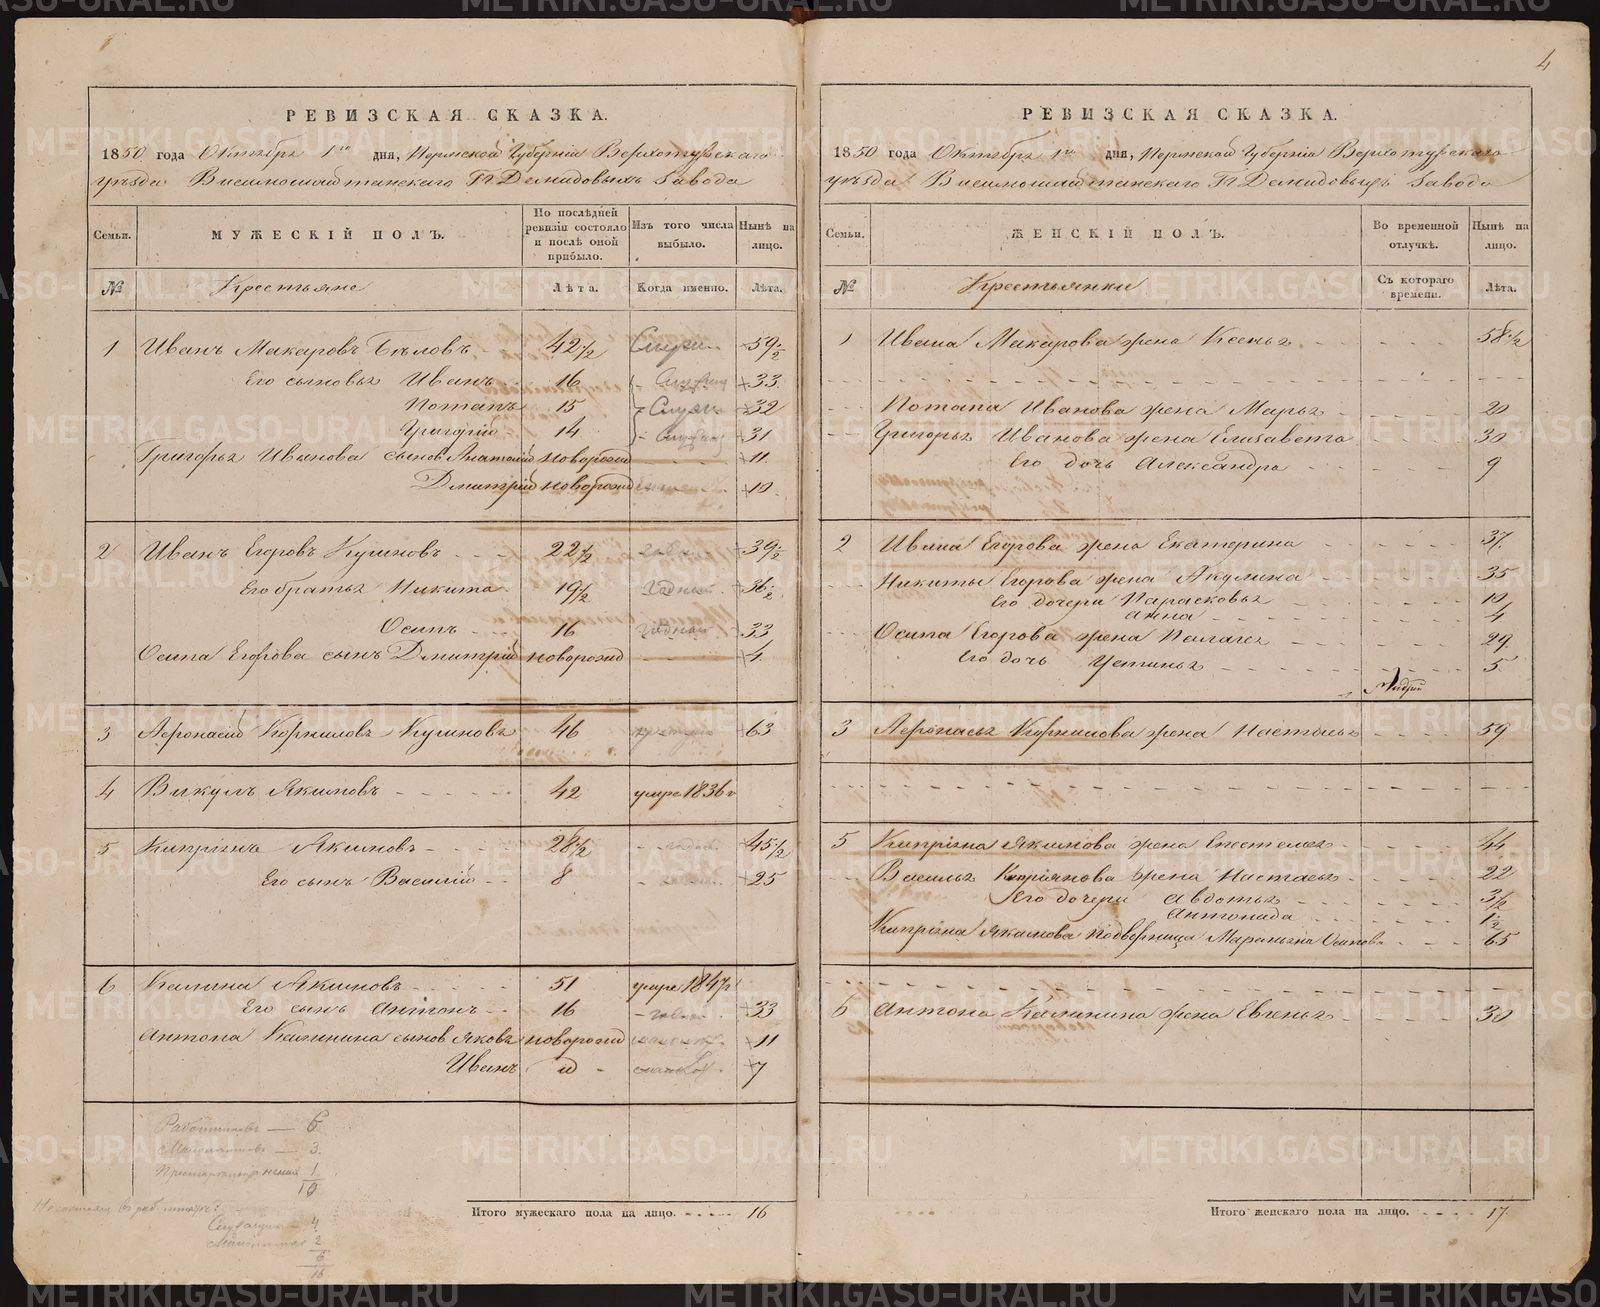 4
РЕВИЗСКАЯ СКАЗКА.
1850 года Октября 1го дня, Пермской Губерніи Верхотурскаго
уѣзда Висимошайтанскаго Гг Демидовыхъ Завода
Семьи.
МУЖЕСКІЙ ПОЛЪ.
По послѣдней ревизіи состояло и послѣ оной прибыло.
Изъ того числа выбыло.
Нынѣ на лицо.
№
Крестьяне
Лѣта.
Когда именно.
Лѣта.
1 Иванъ Макаровъ Бѣловъ 42½ 59½
Его сыновья Иванъ 16 33
Потапъ 15 32
Григорій 14 31
Григорья Иванова сынов. Анатолій новорожд 11
Дмитрій новорожд 10
2 Иванъ Егоровъ Кушновъ 22½ 39½
Его братья Никита 19½ годный 36½
Осипъ 16 годный 33
Осипа Егорова сынъ Дмитрій новорожд 4
3 Афонасій Корниловъ Кушновъ 46 63
4 Викулъ Якимовъ 42 умре 1836 г
5 Кипріянъ Якимовъ 28½ 45½
Его сынъ Василій 8 25
6 Калина Якимовъ 51 умре 1847 г
Его сынъ Антонъ 16 33
Антона Калинина сынов. Яковъ новорожд 11
Иванъ 7
Работниковъ — 6
Малолѣтковъ — 3
1
10
4
2
6
16
Итого мужескаго пола на лицо. 16
РЕВИЗСКАЯ СКАЗКА.
1850 года Октября 1го дня, Пермской Губерніи Верхотурскаго
уѣзда Висимошайтанскаго Гг Демидовыхъ Завода
Семьи.
ЖЕНСКІЙ ПОЛЪ.
Во временной отлучкѣ.
Нынѣ на лицо.
№
Крестьянки
Съ котораго времени.
Лѣта.
1 Ивана Макарова жена Ксенья 58½
Потапа Иванова жена Марья 20
Григорья Иванова жена Елизавета 30
Его дочь Александра 9
2 Ивана Егорова жена Екатерина 37
Никиты Егорова жена Акулина 35
Его дочери Парасковья 10
Анна 4
Осипа Егорова жена Палагея 29
Его дочь Устинья 5
3 Афонасья Корнилова жена Настасья 59
5 Кипріяна Якимова жена 44
Василья Кипріянова жена Настасья 22
Его дочери Авдотья 3½
Антонида 1½
Кипріяна Якимова подворница Маремьяна Осипова 65
6 Антона Калинина жена Евгенья 30
Итого женскаго пола на лицо. 17
METRIKI.GASO-URAL.RU